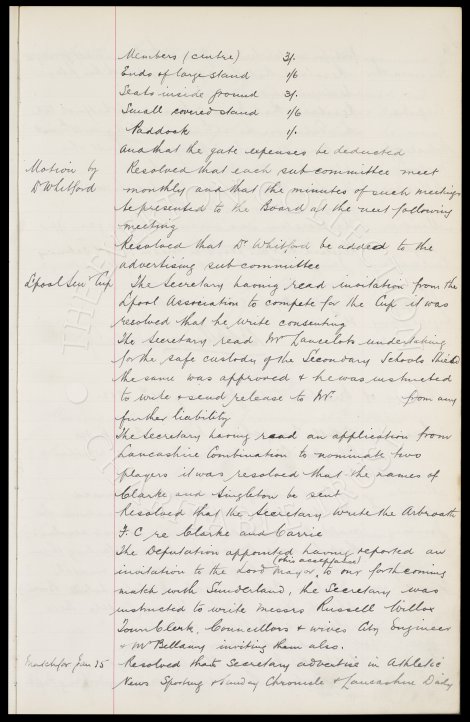 Members (centre) 3/-
Ends of large stand 1/6
Seats inside ground 3/-
Small covered stand 1/6
Paddock 1/-
and that the gate expenses be deducted
Motion by Dr Whitford
Resolved that each sub committee meet
monthly and that the minutes of such meetings
be presented to the Board at the next following
meeting
Resolved that Dr Whitford be added to the
advertising sub committee
Lpool Sen Cup
The Secretary having read invitation from the
Lpool Association to compete for the Cup it was
resolved that he write consenting
The Secretary read Mr Lancelots undertaking
for the safe custody of the Secondary Schools Shield
the same was approved & he was instructed
to write & send release to Mr from any
further liability
The Secretary having read an application from
Lancashire Combination to nominate two
players it was resolved that the names of
Clarke and Singleton be sent
Resolved that the Secretary write the Arbroath
F.C re Clarke and Carrie
The Deputation appointed having reported an
invitation to the Lord Mayor, (& his acceptance) to our forthcoming
match with Sunderland, the Secretary was
instructed to write messrs Russell Willox
Town Clerk, Councillors & wives City Engineer
& Mr Bellamy inviting them also.
Match for Jan 15
Resolved that Secretary advertise in Athletic
News Sporting & Sunday Chronicle & Lancashire Daily